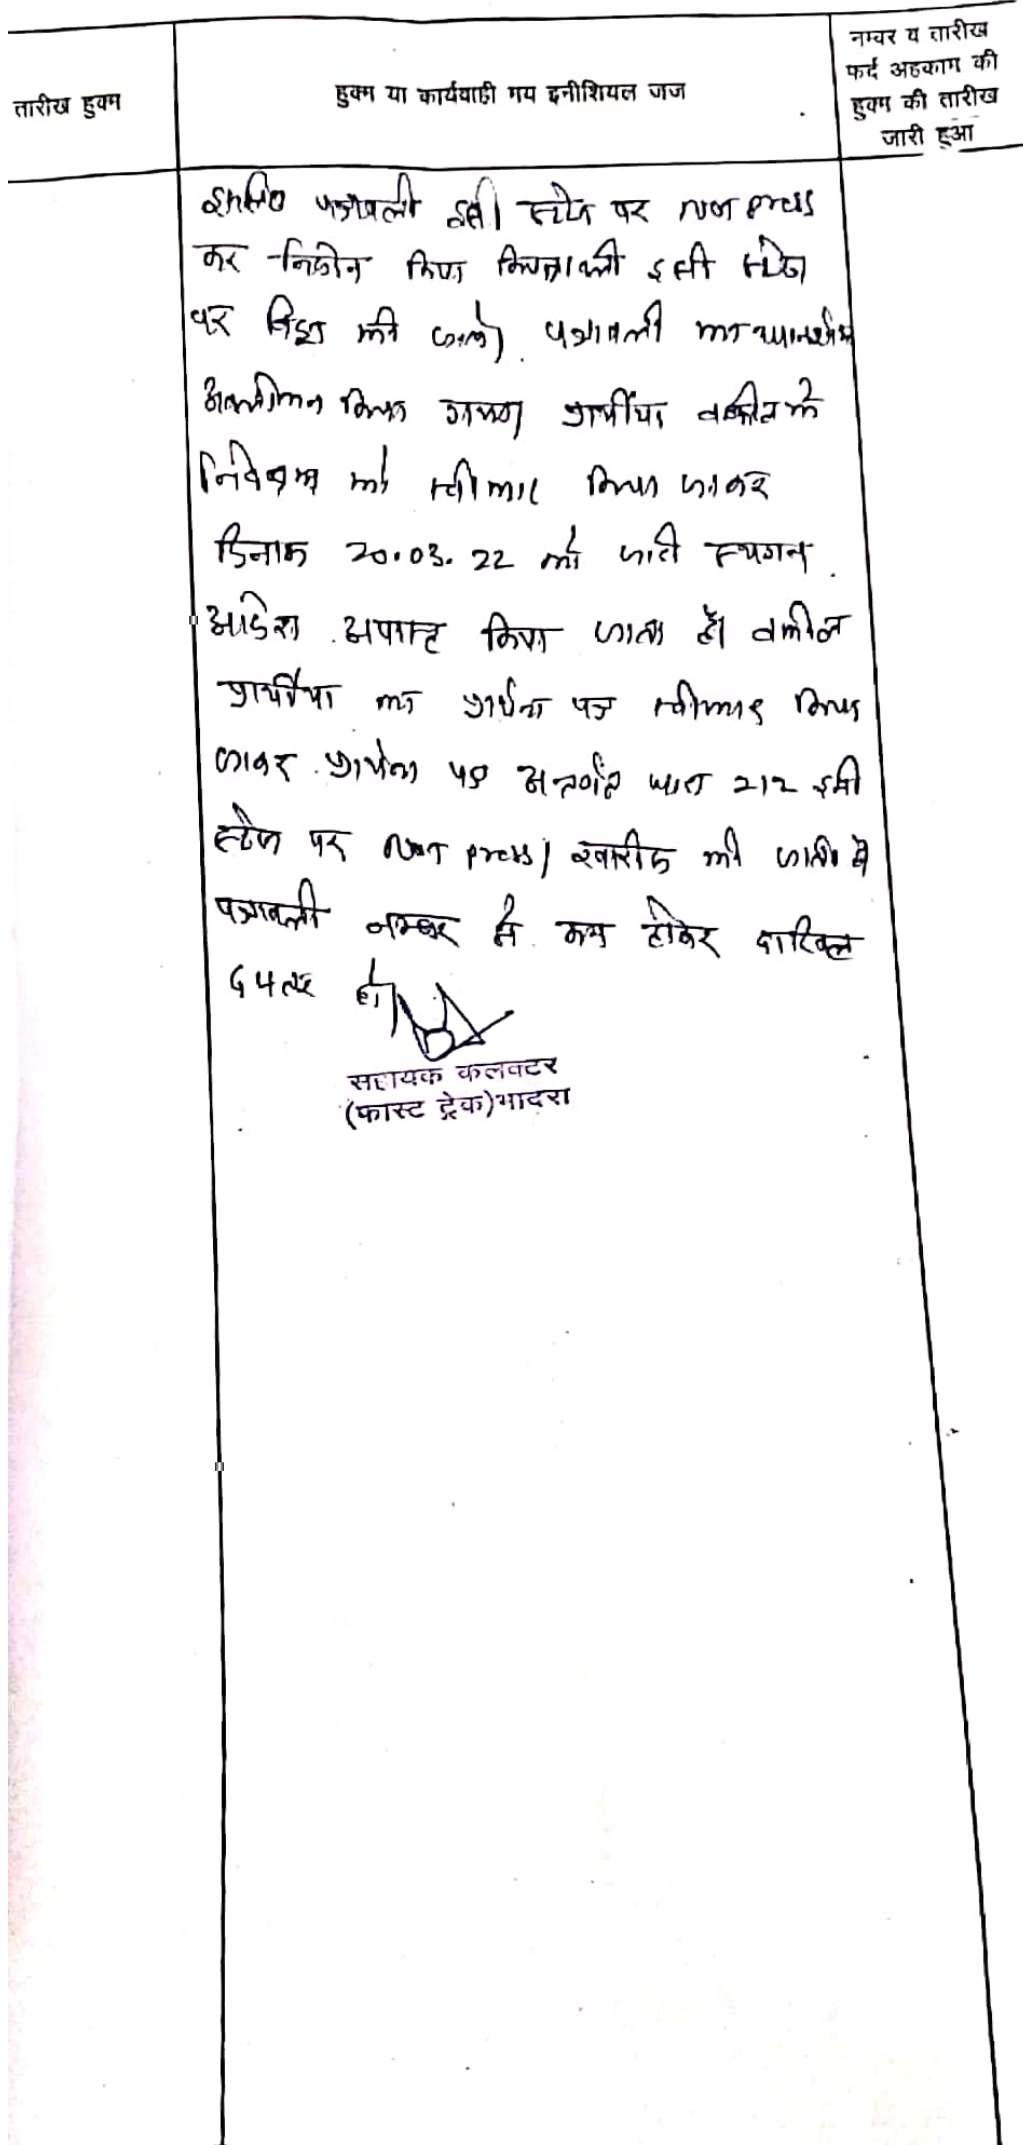 तारीख हुक्म
हुक्म या कार्यवाही मय इनीशियल जज
नम्बर व तारीख
फर्द अहकाम की
हुक्म की तारीख
जारी हुआ
इसलिए पत्रावली इसी स्टेज पर not press
कर किया इसी स्टेज
पर की जावे. पत्रावली का
अवलोकन किया गया प्रार्थीया वकील के
निवेदन को स्वीकार किया जाकर
दिनांक 20.03.22 को जारी स्थगन
आदेश अपास्त किया जाता है। वकील
प्रार्थीया का प्रार्थना पत्र स्वीकार किया
जाकर प्रार्थना पत्र अन्तर्गत धारा 212 इसी
स्टेज पर Not press/ खारीज की जाती है
पत्रावली नम्बर से कम होकर दाखिल
दफ्तर हो।
सहायक कलक्टर
(फास्ट ट्रेक) भादरा